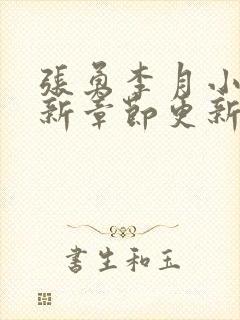 張勇李月小
新章節更新
書生和玉